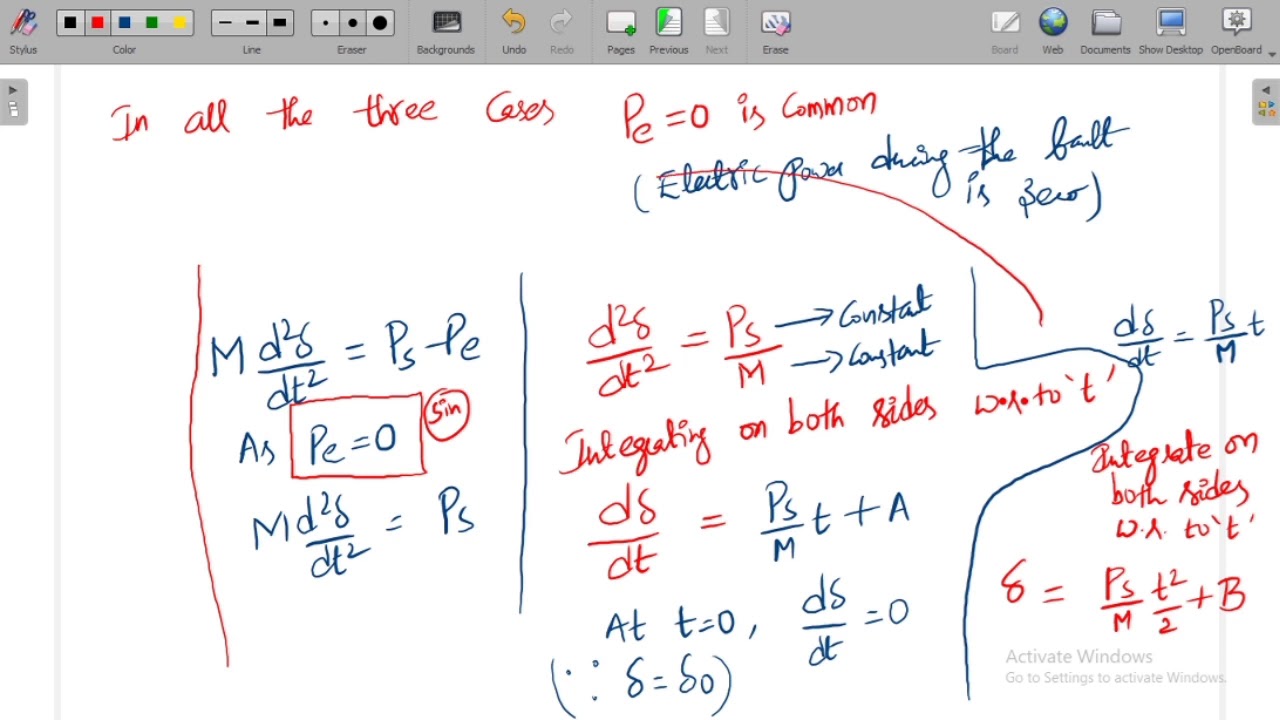 Stylus
Color
Line
Eraser
Backgrounds
Undo
Redo
Pages
Previous
Next
Erase
Board
Web
Documents
Show Desktop
OpenBoard
In all the three Cases Pe = 0 is Common
(Electric Power during the fault
is zero)
M d²δ/dt² = Ps - Pe
As Pe = 0 5in
M d²δ/dt² = Ps
d²δ/dt² = Ps/M → Constant
→ Constant
Integrating on both sides w.r.to 't'
dδ/dt = Ps/M t + A
At t=0, dδ/dt = 0
(∵ δ = δ0)
dδ/dt = Ps/M t
Integrate on
both sides
w.r. to 't'
δ = Ps/M t²/2 + B
Activate Windows
Go to Settings to activate Windows.